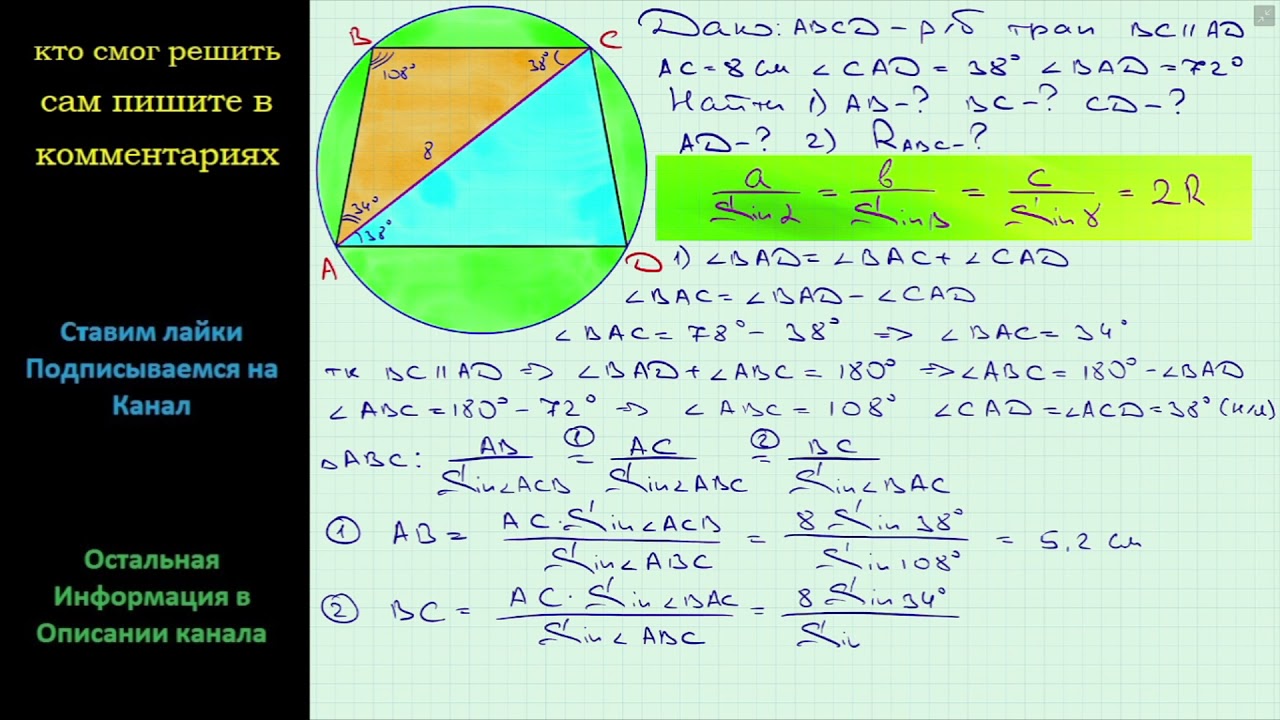 кто смог решить
сам пишите в
комментариях
Ставим лайки
Подписываемся на
Канал
Остальная
Информация в
Описании канала
B
C
108°
38°
8
34°
38°
A
D
Дано: ABCD – р/б трап BC || AD
AC = 8 см ∠CAD = 38° ∠BAD = 72°
Найти 1) AB-? BC-? CD-?
AD-? 2) R_ABC-?
a/Sin α = b/Sin β = c/Sin γ = 2R
1) ∠BAD = ∠BAC + ∠CAD
∠BAC = ∠BAD – ∠CAD
∠BAC = 78° – 38° => ∠BAC = 34°
тк BC || AD => ∠BAD + ∠ABC = 180° => ∠ABC = 180° - ∠BAD
∠ABC = 180° – 72° => ∠ABC = 108° ∠CAD = ∠ACD = 38° (н/л)
△ABC: AB/Sin∠ACB ①= AC/Sin∠ABC ②= BC/Sin∠BAC
① AB = AC·Sin∠ACB/Sin∠ABC = 8 Sin 38°/Sin 108° = 5,2 см
② BC = AC·Sin∠BAC/Sin∠ABC = 8 Sin 34°/Sin